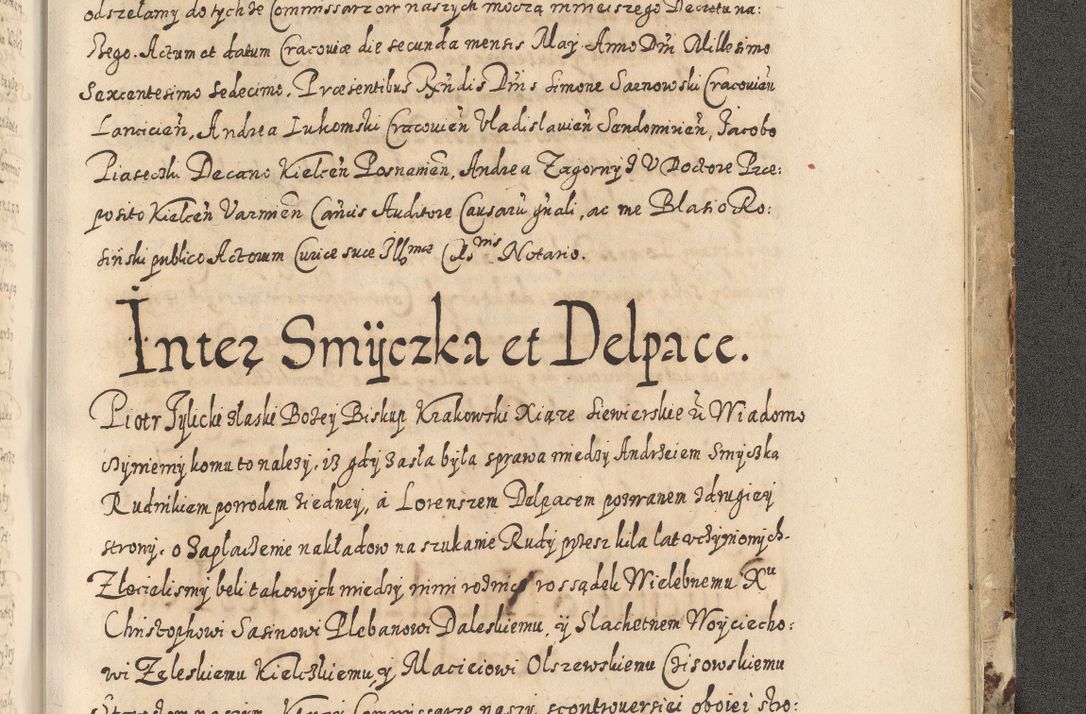 odszełamy do tych że Commissarzow naszych moczą mnieiszego Decretu na:
szego. Actum et datum Cracoviæ die secunda mensis Maÿ Anno Dn̄i Millesimo
Sexcentesimo sedecimo. Præsentibus Rn̄dis Dn̄is Simone Saenowski Cracovien̄
Lancicien̄, Andrea Lukomski Cracovien̄ Vladislavien̄ Sendomirien̄, Jacobo
Piasecki Decano Kielcen̄ Posnamen̄, Andrea Zagorny J V Doctore Præ:
posito Kielcen̄ Varmien̄ Can̄cis Auditore Causarū gn̄ali, ac me Blasio Ro:
siński publico Actorum Curiæ suæ Illmæ Clsmis Notario.
Inter Smÿczka et Delpace.
Piotr Tylicki z łaski Bożey Biskup Krakowski Xiąze Siewierskie ū Wiadomo
czyniemy komu to należy, iż gdy zasła była sprawa miedzy Andrzeiem Smyczka
Rudnikiem powodem z iedney, a Lorenszem Delpacem pozwanem z drugiey
strony, o zapłaczenie nakładow na szukanie Rudy przesz kila lat uczynionych.
Zlecielismy beli takowych miedzy nimi rożnic rossądek Wielebnemu Xu
Christophowi Sasinowi Plebanowi Daleskiemu, ÿ Slachetnem Woyciecho:
wi Zeleskiemu Kielczkiemu, ÿ Macieiowi Olszewskiemu Czisowskiemu
naszym, Commissarze naszy, scontrouersiei oboiei stro: